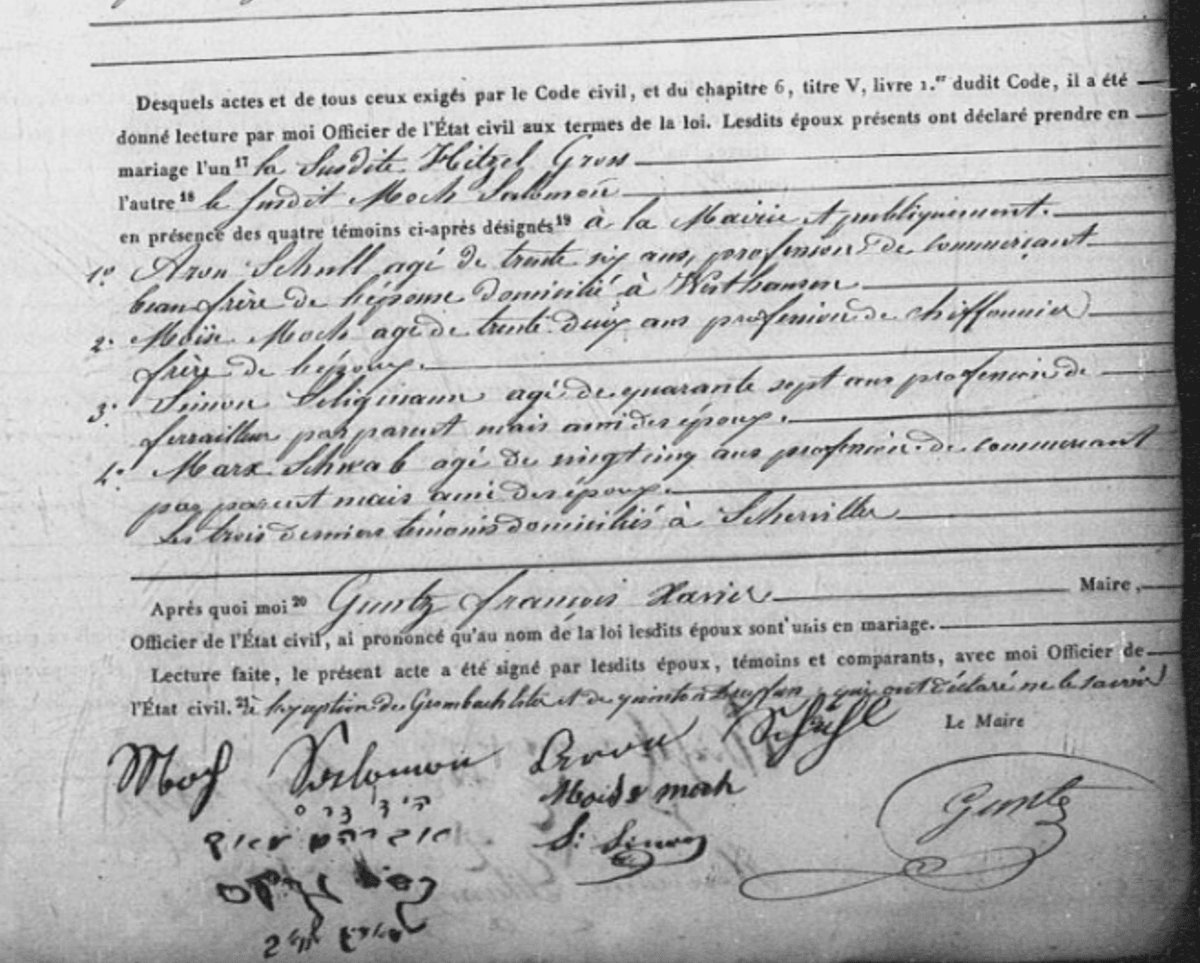 Desquels actes et de tous ceux exigés par le Code civil, et du chapitre 6, titre V, livre 1.er dudit Code, il a été
donné lecture par moi Officier de l'État civil aux termes de la loi. Lesdits époux présents ont déclaré prendre en
mariage l'un 17 la Susdite Hitzel Gross
l'autre 18 le susdit Moch Salomon
en présence des quatre témoins ci-après désignés 19 à la Mairie et publiquement.
1° Aron Schull agé de trente six ans, profession de commerçant
beau frère de l'épouse domicilié à
2° Moïse Moch agé de trente deux ans profession de chiffonnier
frère de l'époux.
3° Simon Seligmann agé de quarante sept ans profession de
ferrailleur pas parent mais ami des époux.
4° Marx Schwab agé de vingt cinq ans profession de commercant
pas parent mais ami des époux.
Les trois derniers témoins domiciliés à Scherviller
Après quoi moi 20 Guntz françois Xavier Maire,
Officier de l'État civil, ai prononcé qu'au nom de la loi lesdits époux sont unis en mariage.
Lecture faite, le présent acte a été signé par lesdits époux, témoins et comparants, avec moi Officier de
l'État civil. 21 à et de qui ont déclaré ne le savoir
Le Maire
Moch Salomon Aron
Moise moch
Guntz